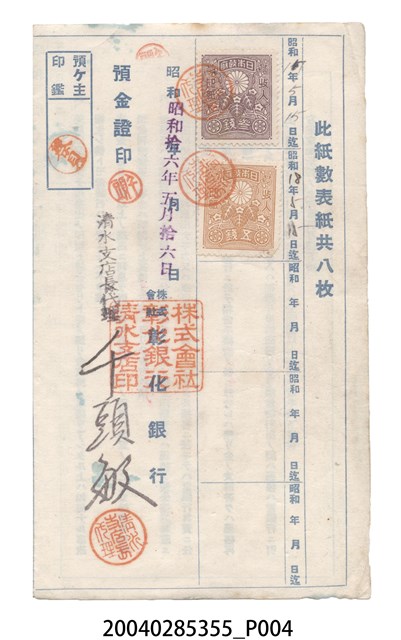 此紙數表紙共八枚
昭和16年5月15日迄
昭和18年5月　日迄
昭和　年　月　日迄
昭和　年　月　日迄
昭和　年　月　日迄
日本政府
參錢
日本政府
五錢
昭和　年　月　日
昭和拾六年五月拾六日
預金證印
株式會社彰化銀行
株式會社
彰化銀行
清水支店印
清水支店長代理
千頭敏
預ケ主
印鑑
20040285355_P004